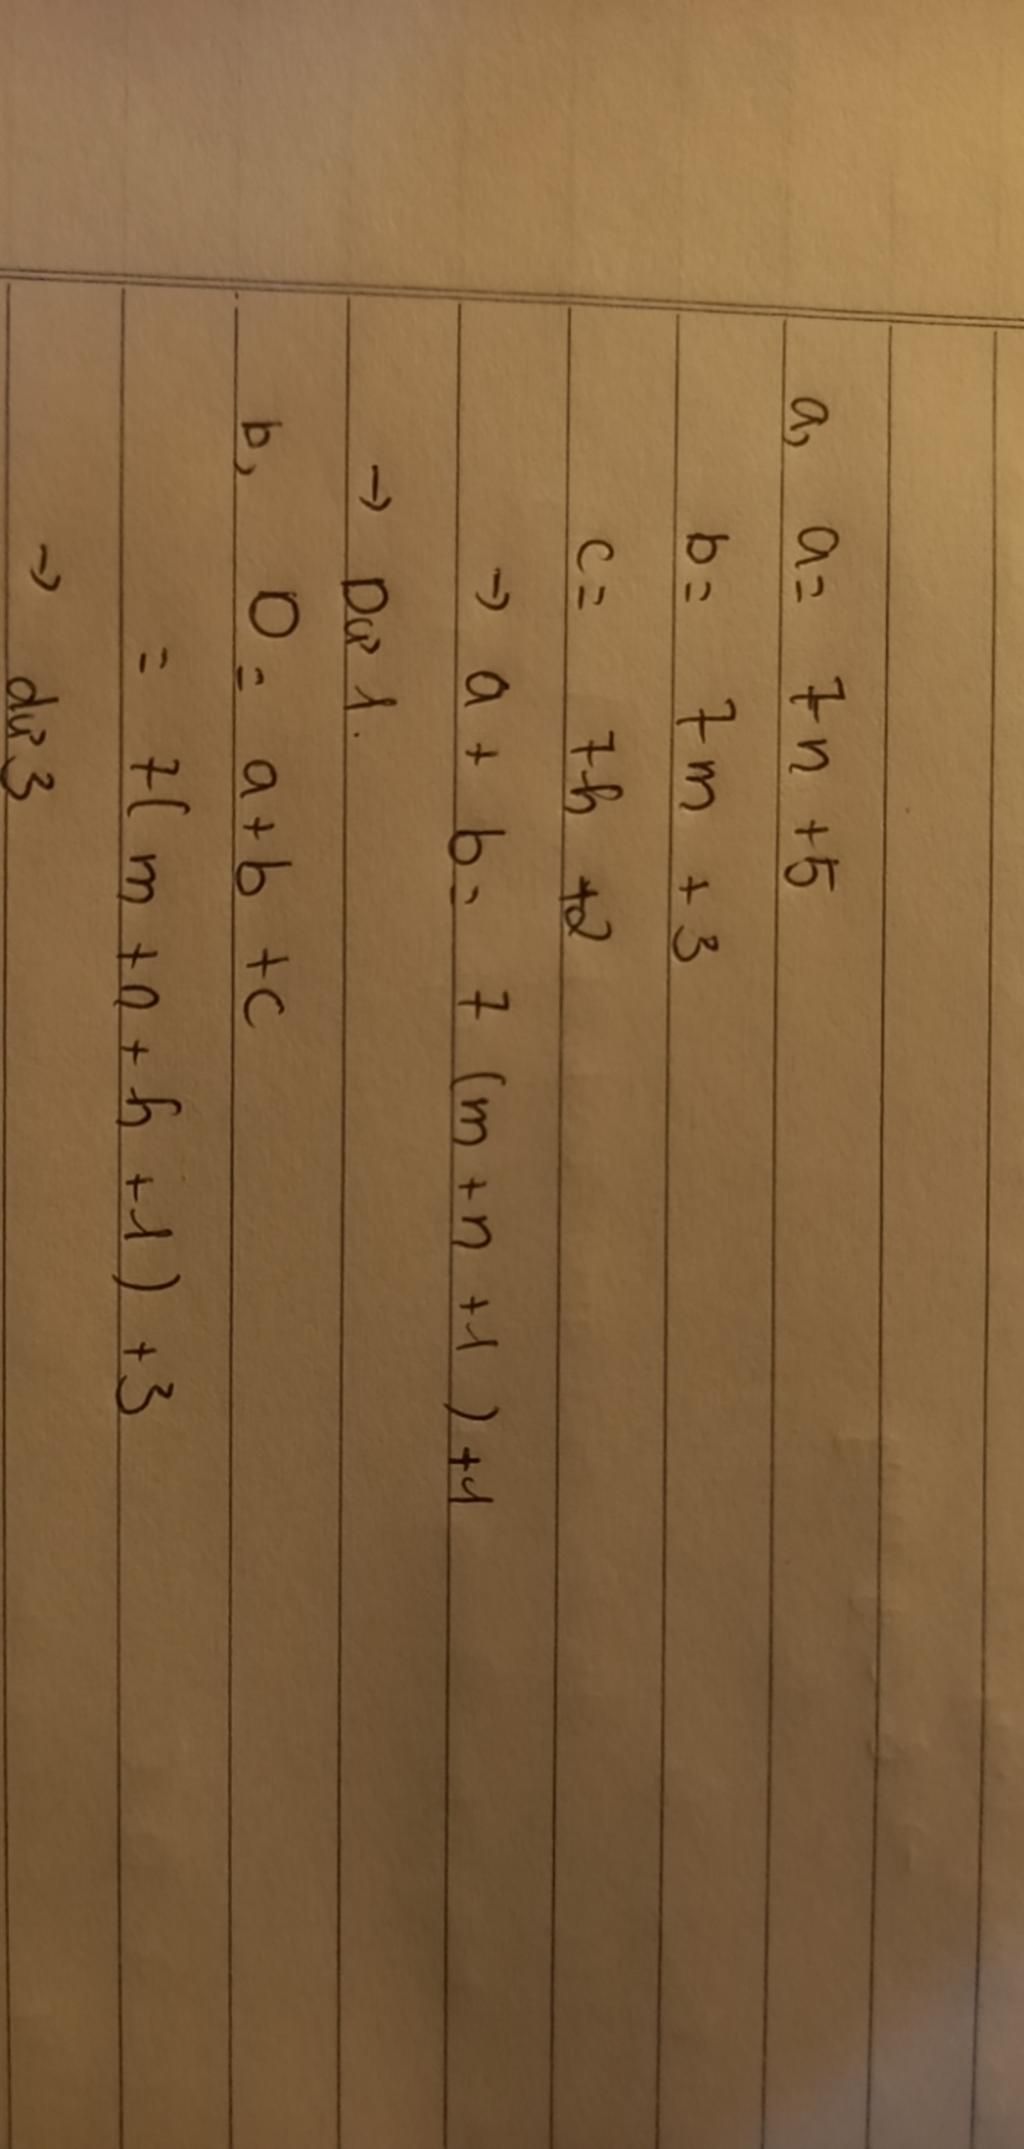 a, a= 7n +5
b= 7m +3
c= 7h +2
→ a + b= 7 (m +n +1) +1
→ Dư 1.
b, D = a+b +c
= 7( m +n + h +1) +3
→ dư 3